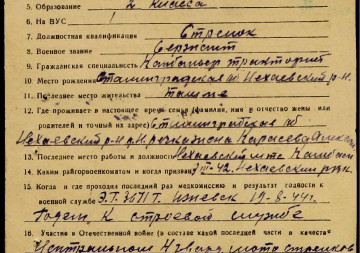 5. Образование 2 класса
6. На ВУС
7. Должностная квалификация Стрелок
8. Военное звание Сержант
9. Гражданская специальность Комбайнер тракторист
10. Место рождения Сталинградская об Нехаевский р-н
11. Последнее место жительства Там же
12. Где проживает в настоящее время семья (фамилия, имя и отчество жены или
родителей и точный их адрес) Сталинградская об
Нехаевский р-н Карасева
13. Последнее место работы и должность Нехаевский мтс Комбайн
14. Каким райгорвоенкоматом и когда призван 3 III-42 Нехаевский рвк
15. Когда и где проходил последний раз медкомиссию и результат годности к
военной службе Э.Г. 3671 г. Ижевск 19-8-44г
Годен к строевой службе
16. Участие в Отечественной войне (в составе какой последней части и в качестве
Центральном 4 гвард мото стрелков